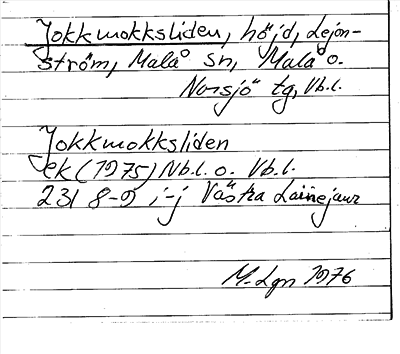 Jokkmokksliden, höjd, Lejon-
ström, Malå sn, Malå o.
Norsjö tg, Vb.l.
Jokkmokksliden
ek (1975) Nb.l. o. Vb.l.
231 8-9 i-j Västra Lainejaur
M-Lgn 1976